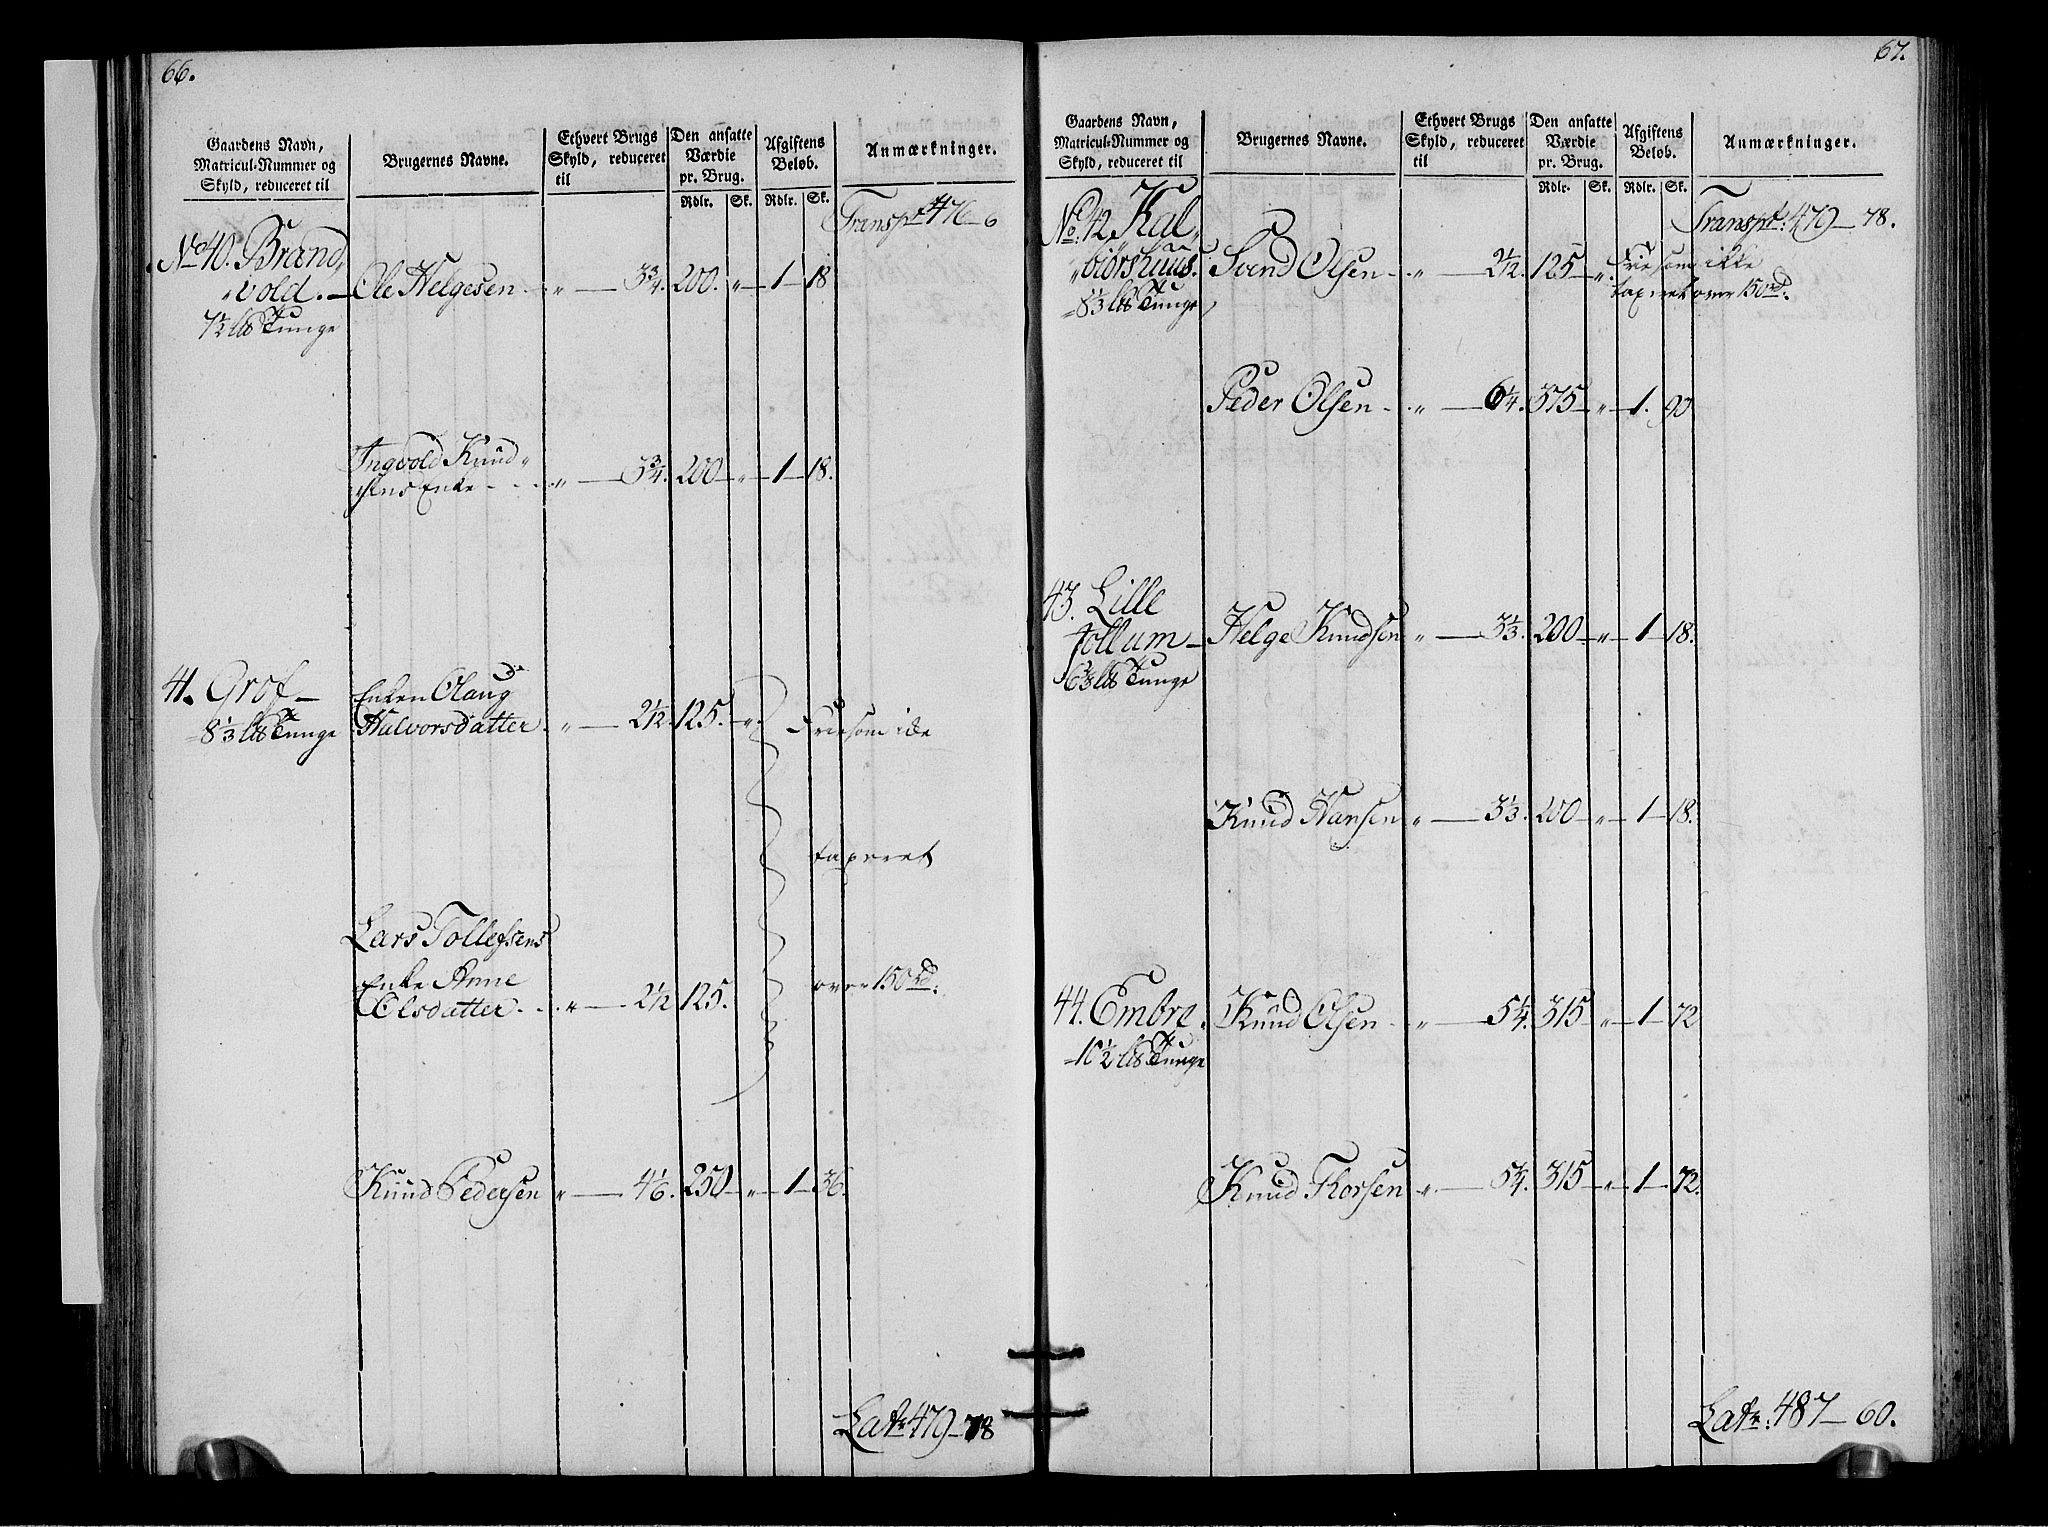 66.
Gaardens Navn,
Matricul-Nummer og
Skyld, reduceret til
Brugernes Navne.
Ethvert Brugs
Skyld, reduceret
til
Den ansatte
Værdie
pr. Brug.
Rdlr. Sk.
Afgiftens
Beløb.
Rdlr. Sk.
Anmærkninger.
Transpt 476-6
No 40. Brand,,
"vold. - Ole Helgesen - " - 3¾. 200. " - 1 - 18
7½ Tunge
Ingvold Knud"
sens Enke - - - " - 3¾. 200 - " - 1 - 18.
41. Grof - Enken Olaug
8⅓ Tunge Halvorsdatter. " - 2½. 125. - " Frie som ikke
taxeret
Lars Tollefsens
Enke Anne
Olsdatter - - " - 2½ 125. over 150 rd.
Knud Pedersen " - 4⅙. 250 - " - 1 - 36.
Latr 479-78
67.
Gaardens Navn,
Matricul-Nummer og
Skyld, reduceret til
Brugernes Navne.
Ethvert Brugs
Skyld, reduceret
til
Den ansatte
Værdie
pr. Brug.
Rdlr. Sk.
Afgiftens
Beløb.
Rdlr. Sk.
Anmærkninger.
Transpt: 479-78.
No. 42, Kal"
"biørshuus. Svend Olsen - " - 2½. 125 - " Frie som ikke
8⅓ Tunge, taxeret over 150 rd.
Peder Olsen - " - 6¼. 375 - " - 1. 90
43. Lille
Tollum - Helge Knudsen " - 3⅓. 200 - " - 1 - 18.
6⅔ Tunge
Knud Hansen " - 3⅓. 200 - " - 1 - 18.
44. Embre. Knud Olsen - " - 5¼. 315 - " - 1 - 72
10½ Tunge
Knud Thorsen " - 5¼. 315 - " - 1 - 72.
Latr: 487-60.